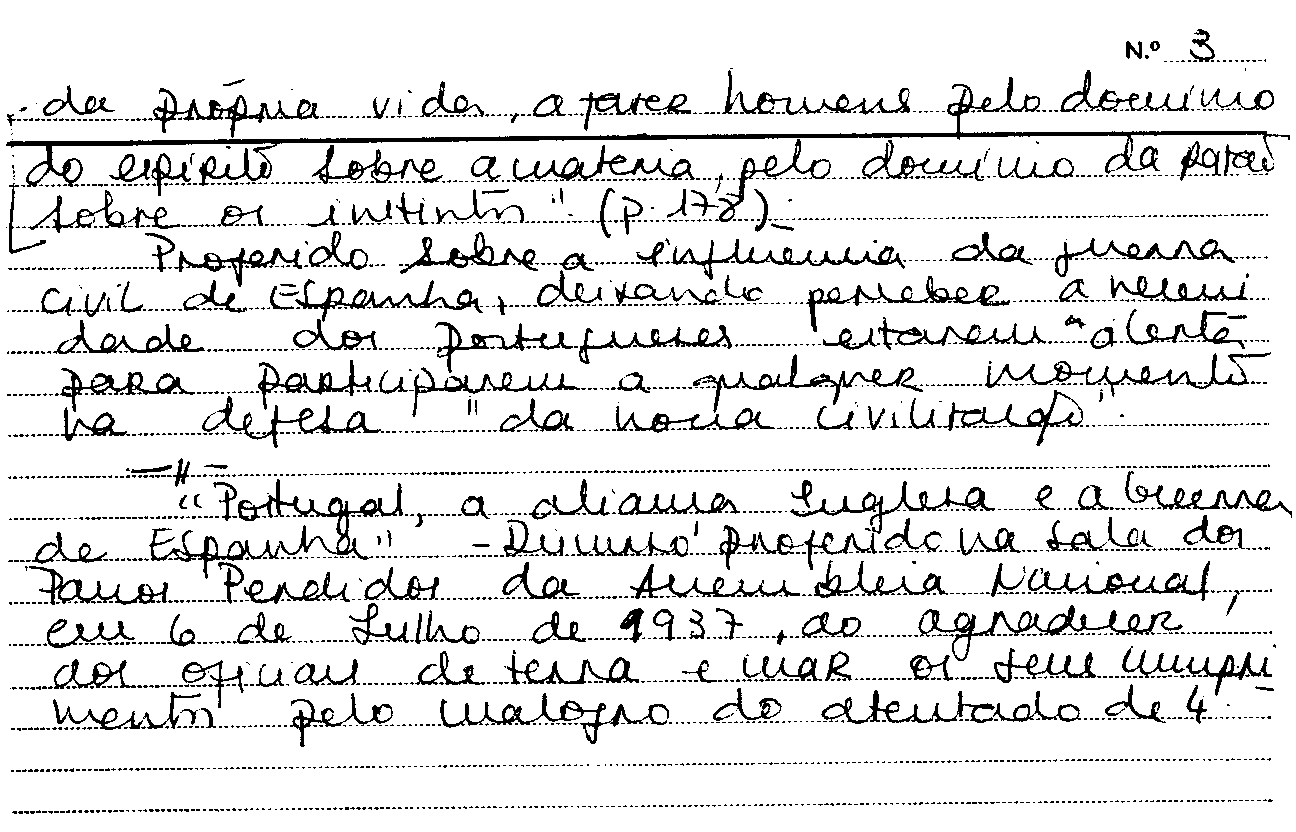 N.º 3
da própria vida, a fazer homens pelo domínio
do espírito sobre a matéria, pelo domínio da razão
sobre os instintos" (p. 178).
Proferido sobre a influência da guerra
civil de Espanha, deixando perceber a necessi
dade dos portugueses estarem "alerta"
para participarem a qualquer momento
na defesa "da nossa civilização".
—"—
"Portugal, a aliança Inglesa e a Guerra
de Espanha" - Discurso proferido na Sala dos
Passos Perdidos da Assembleia Nacional,
em 6 de Julho de 1937, ao agradecer
aos oficiais de terra e mar os seus cumpri
mentos pelo malogro do atentado de 4